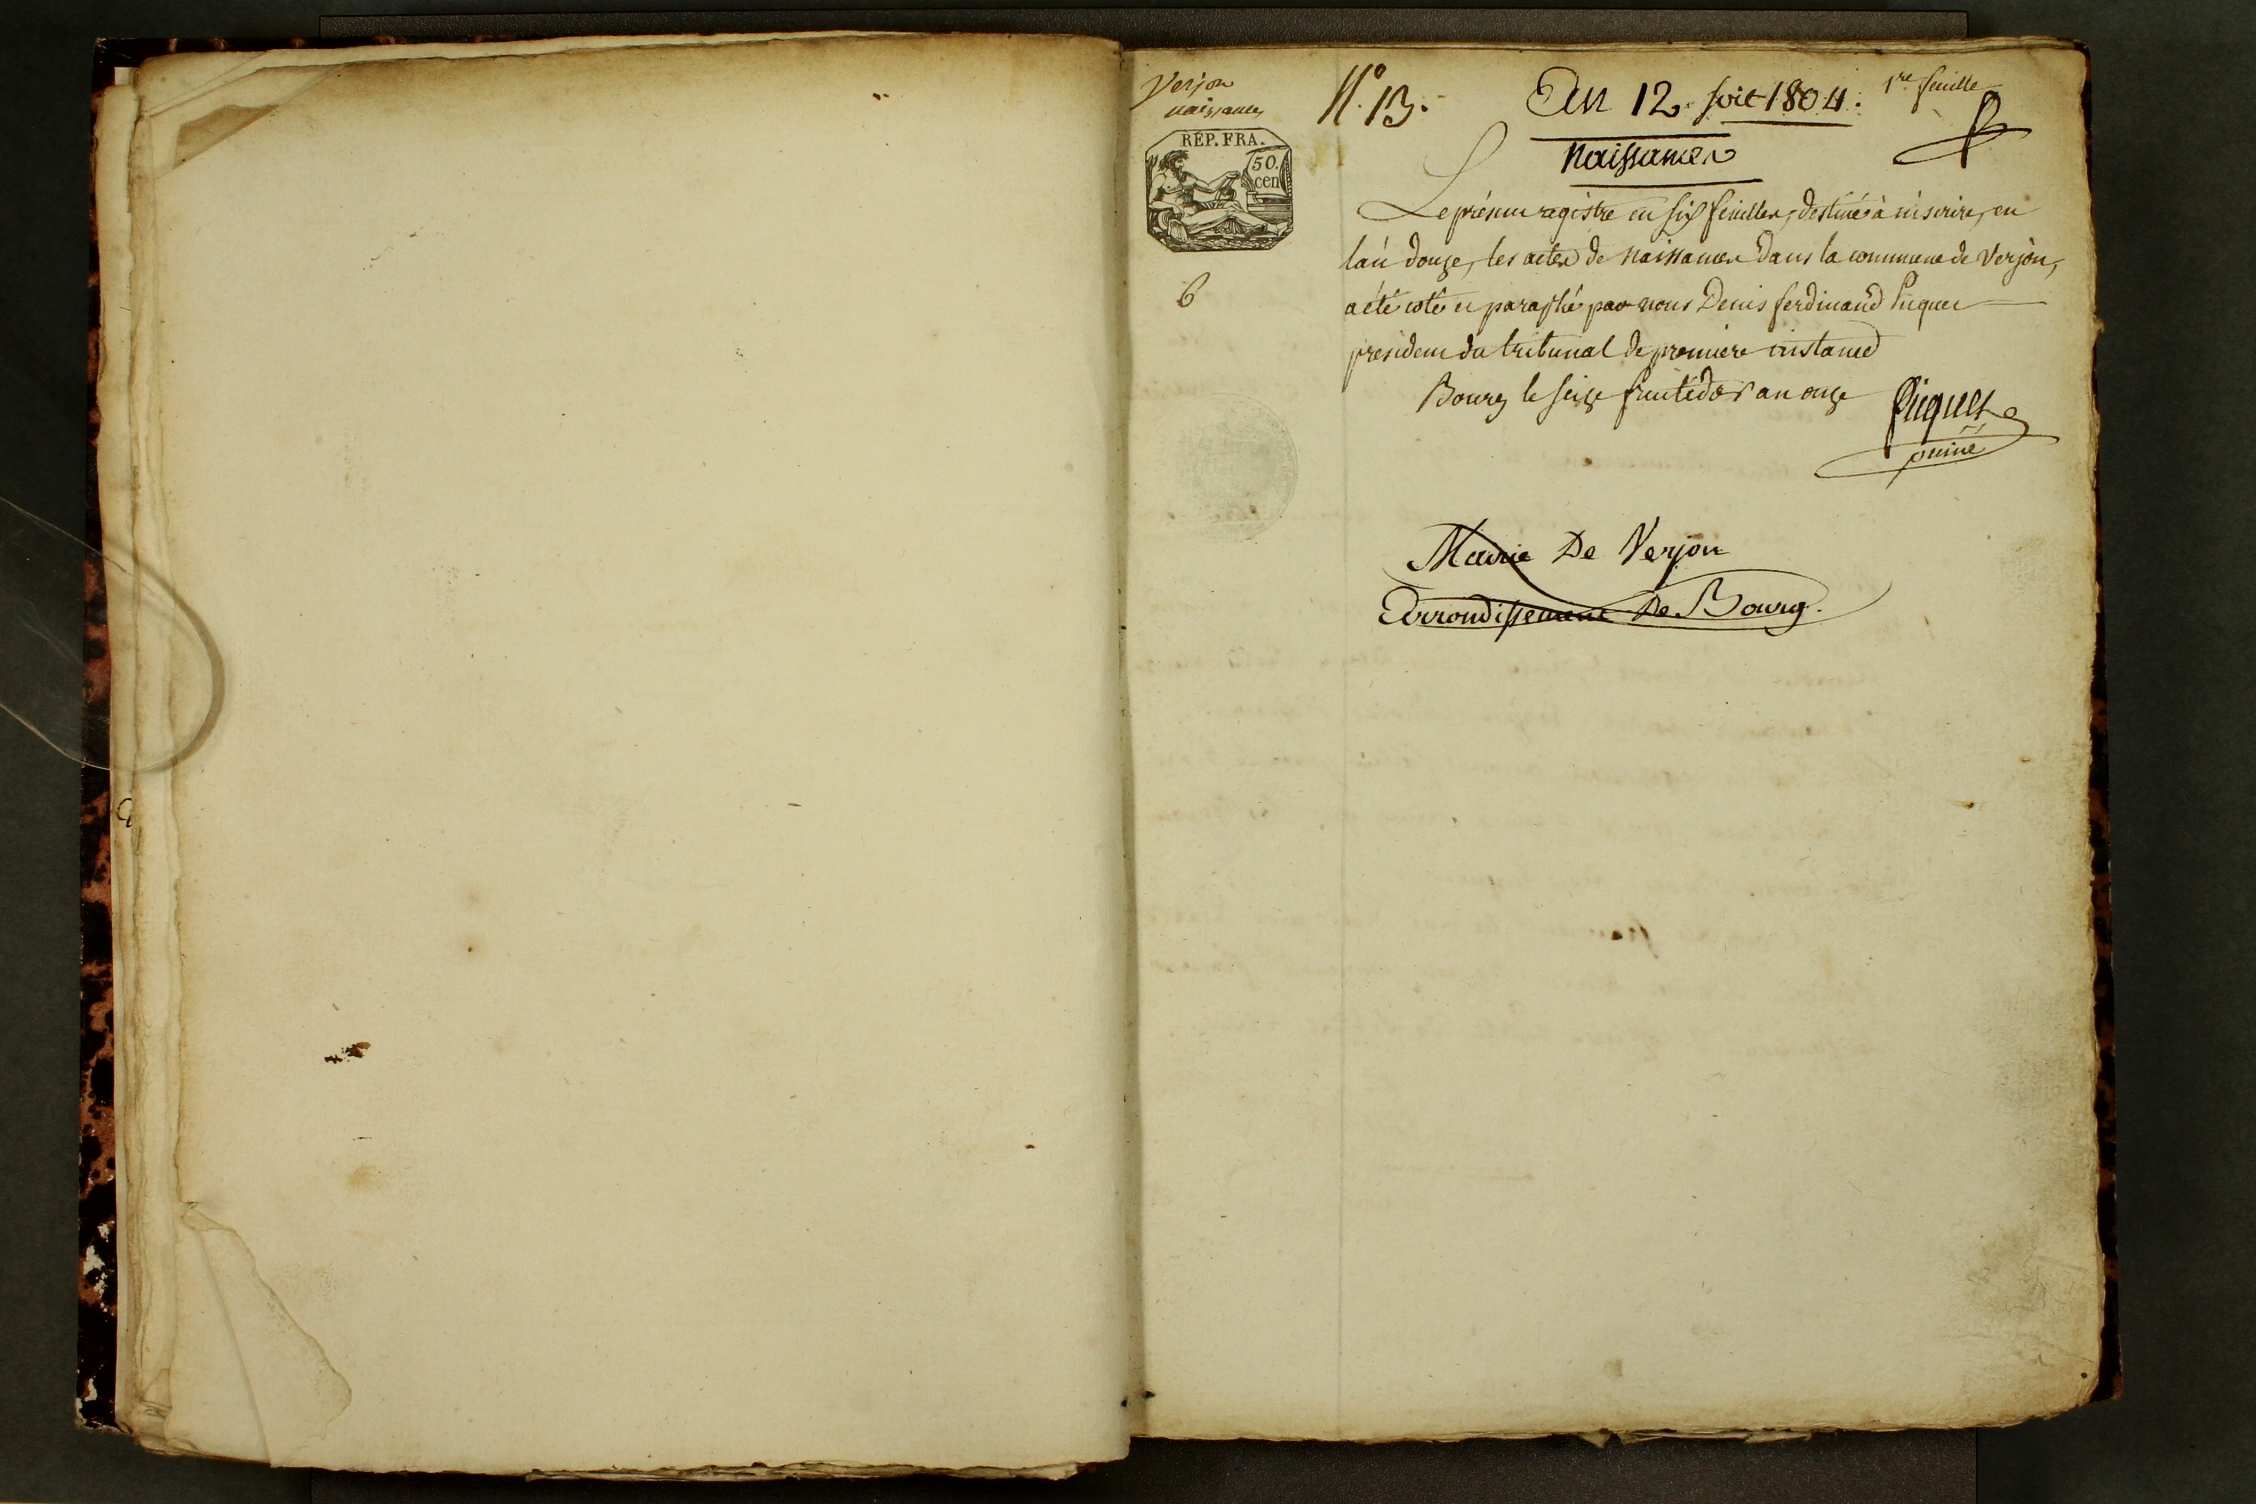 Verjon
naissances
RÉP. FRA.
50.
cen
6
N.° 13.
An 12. soit 1804.
1re feuille
Naissances
Le présent registre en six feuilles, destiné à inscrire, en
l'an douze, les actes de Naissances dans la commune de Verjon,
a été coté et paraphé par nous Denis ferdinand Piquet
president du tribunal de premiere instance
Bourg le seize fructidor an onze
Piquet
Mairie De Verjon
Arrondissement De Bourg.